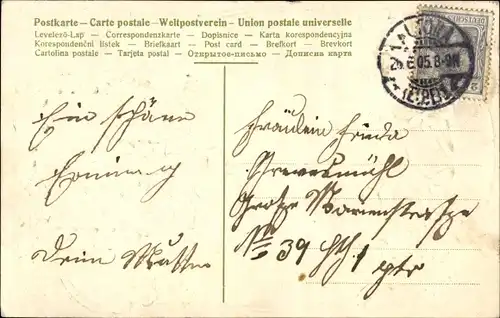 Postkarte – Carte postale – Weltpostverein – Union postale universelle
Levelező-Lap — Correspondenzkarte — Dopisnice — Karta korespondencyjna
Korespondenční lístek — Briefkaart — Post card — Brefkort — Brevkort
Cartolina postale — Tarjeta postal — Открытое-письмо — Дописна карта
Ein schöne
Deine Mutter
Fräulein Frieda
Grevesmühl
Große Marienstraße
No 39 Hth. 1
ptr
ALTONA
05. 8-9